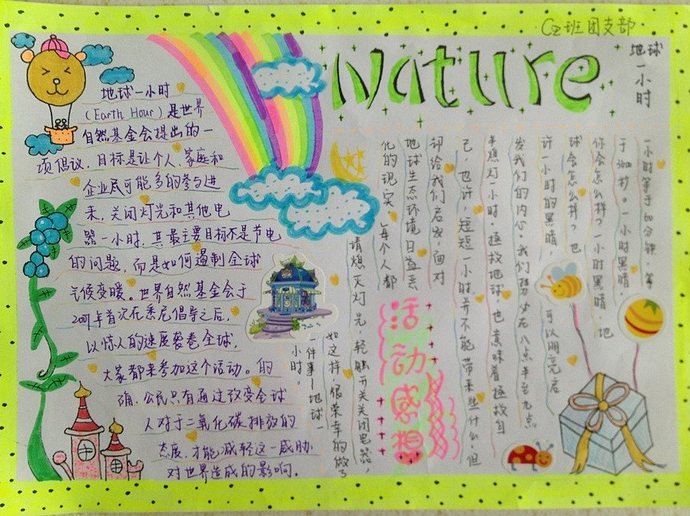 C2班团支部
Nature
地球一小时
地球一小时
(Earth Hour)是世界
自然基金会提出的一
项倡议,目标是让个人、家庭和
企业尽可能多的参与进
来,关闭灯光和其他电
器一小时,其最主要目标不是节电
的问题,而是如何遏制全球
气候变暖。世界自然基金会于
首次在悉尼倡导之后,
以惊人的速度袭卷全球,
大家都来参加这个活动。的
确,公民只有通过改变全球
人对于二氧化碳排放的
态度,才能减轻这一威胁
对世界造成的影响。
一小时等于60分钟,等
于3600秒。一小时黑暗,
你会怎么样?一小时黑暗,地
球会怎么样?也
许一小时的黑暗,可以明亮启
发我们的内心。我们努力在八点半到九点
半熄灯一小时,拯救地球,也意味着拯救自
己,也许,短短一小时并不能带来些什么,但
却给我们启发,面对
地球生态环境日益恶
化的现实,每个人都
请熄灭灯光,轻触开关关闭电器,
如这样,很荣幸的做了
一件事——地球一
小时。
活动感想